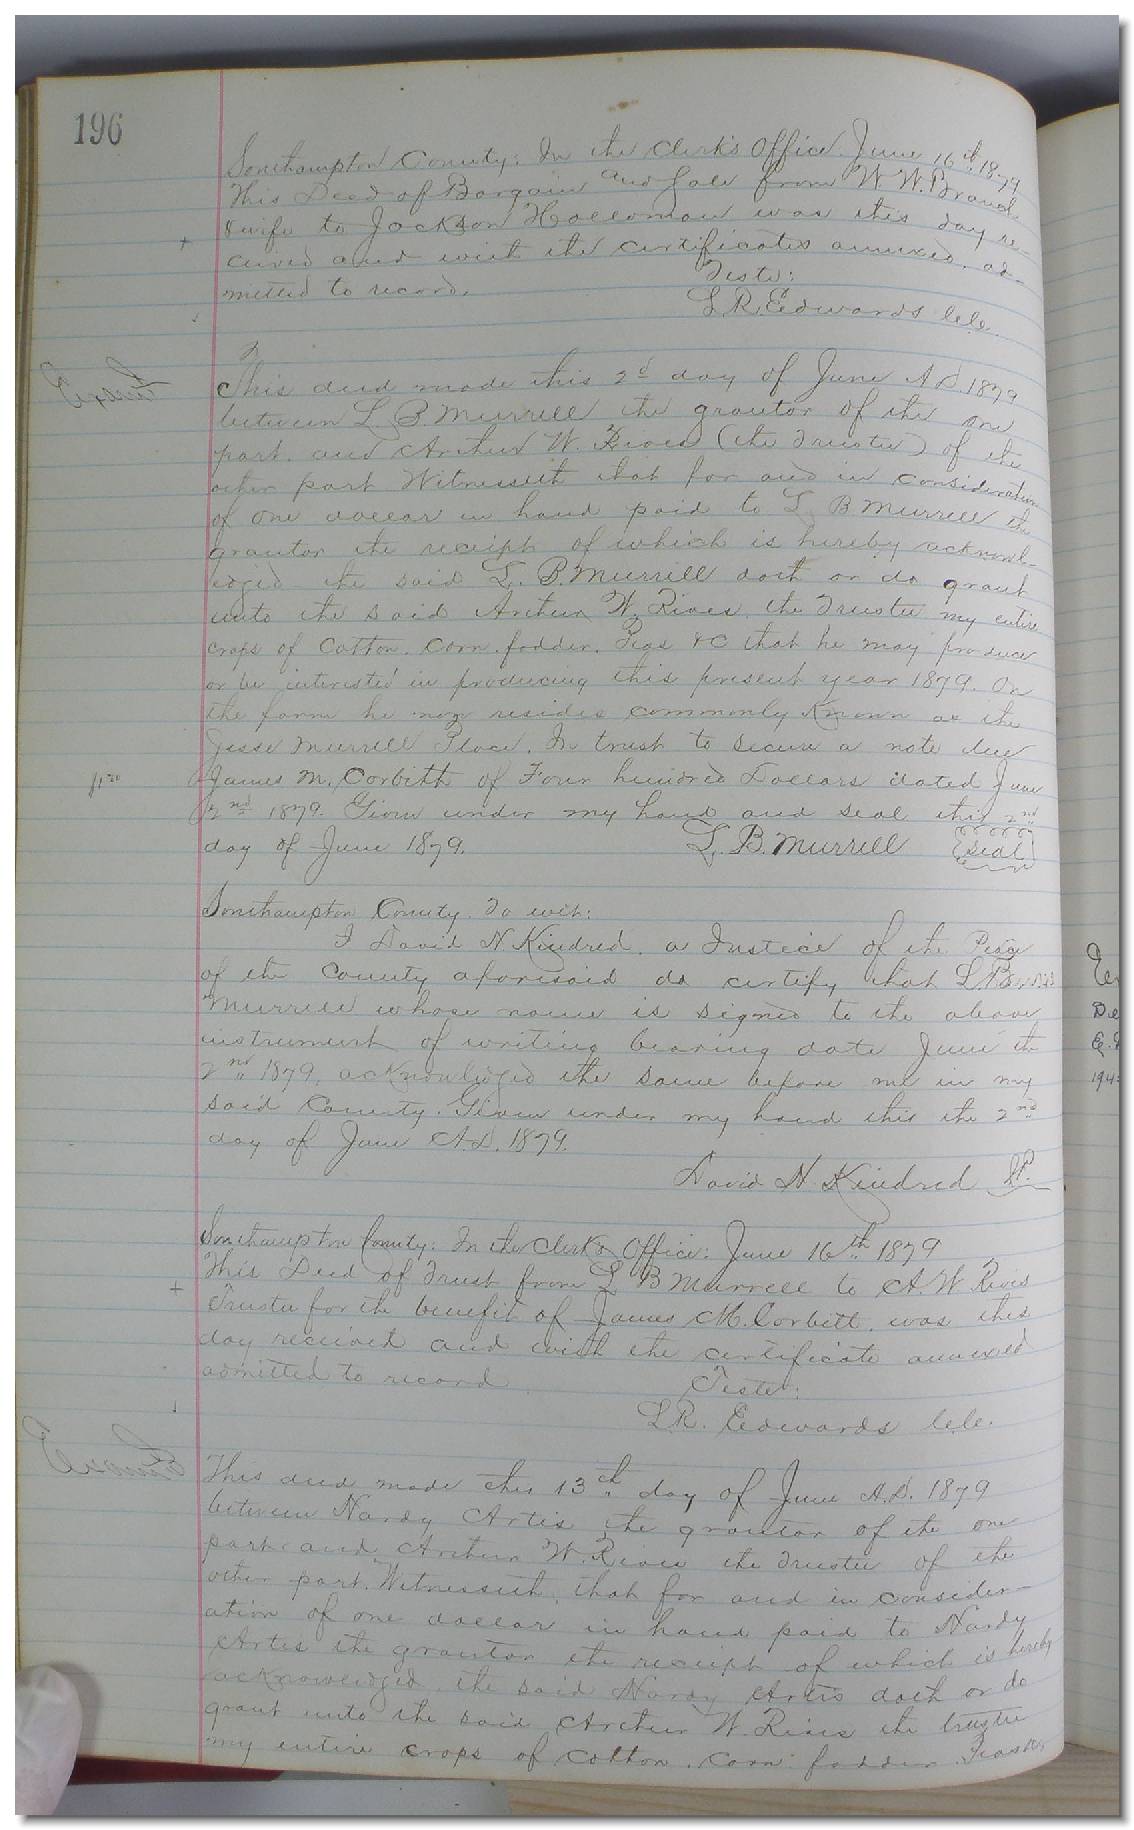 196
Southampton County: In the Clerk's Office June 16th 1879
This Deed of Bargain and Sale from W. W. Branch
& wife to Jackson Holloman was this day re-
ceived and with the certificates annexed, ad-
mitted to record.
Teste:
L. R. Edwards Clk.
This deed made this 2d day of June A D 1879
between L. B. Murrell the grantor of the one
part. and Arthur W. Rives (the Trustee) of the
other part Witnesseth that for and in consideration
of one dollar in hand paid to L B Murrell the
grantor the receipt of which is hereby acknowl-
edged the said L. B. Murrell doth or do grant
unto the said Arthur W. Rives, the Trustee my entire
crops of Cotton. Corn. fodder. Peas &C that he may produce
or be interested in producing this present year 1879. On
the farm he now resides commonly known as the
Jesse Murrell Place. In trust to secure a note due
James M. Corbitt of Four hundred Dollars dated June
2nd 1879. Given under my hand and seal this 2nd
day of June 1879. L. B. Murrell (seal)
Southampton County. To wit:
I David N. Kindred. a Justice of the Peace
of the County aforesaid do certify that L B
Murrell whose name is signed to the above
instrument of writing bearing date June the
2nd 1879, acknowledged the same before me in my
said County. Given under my hand this the 2nd
day of June A.D. 1879.
David N. Kindred JP.
Southampton County: In the Clerk's Office: June 16th 1879
This Deed of Trust from L B Murrell to A. W. Rives
Trustee for the benefit of James M. Corbitt. was this
day received and with the certificate annexed
admitted to record
Teste:
L. R. Edwards Clk.
This deed made this 13th day of June A.D. 1879
between Nardy Artis the grantor of the one
part. and Arthur W. Rives the Trustee of the
other part. Witnesseth, that for and in consider-
ation of one dollar in hand paid to Nardy
Artis the grantor the receipt of which is hereby
acknowledged, the said Nardy Artis doth or do
grant unto the said Arthur W. Rives the trustee
my entire crops of cotton. corn fodder